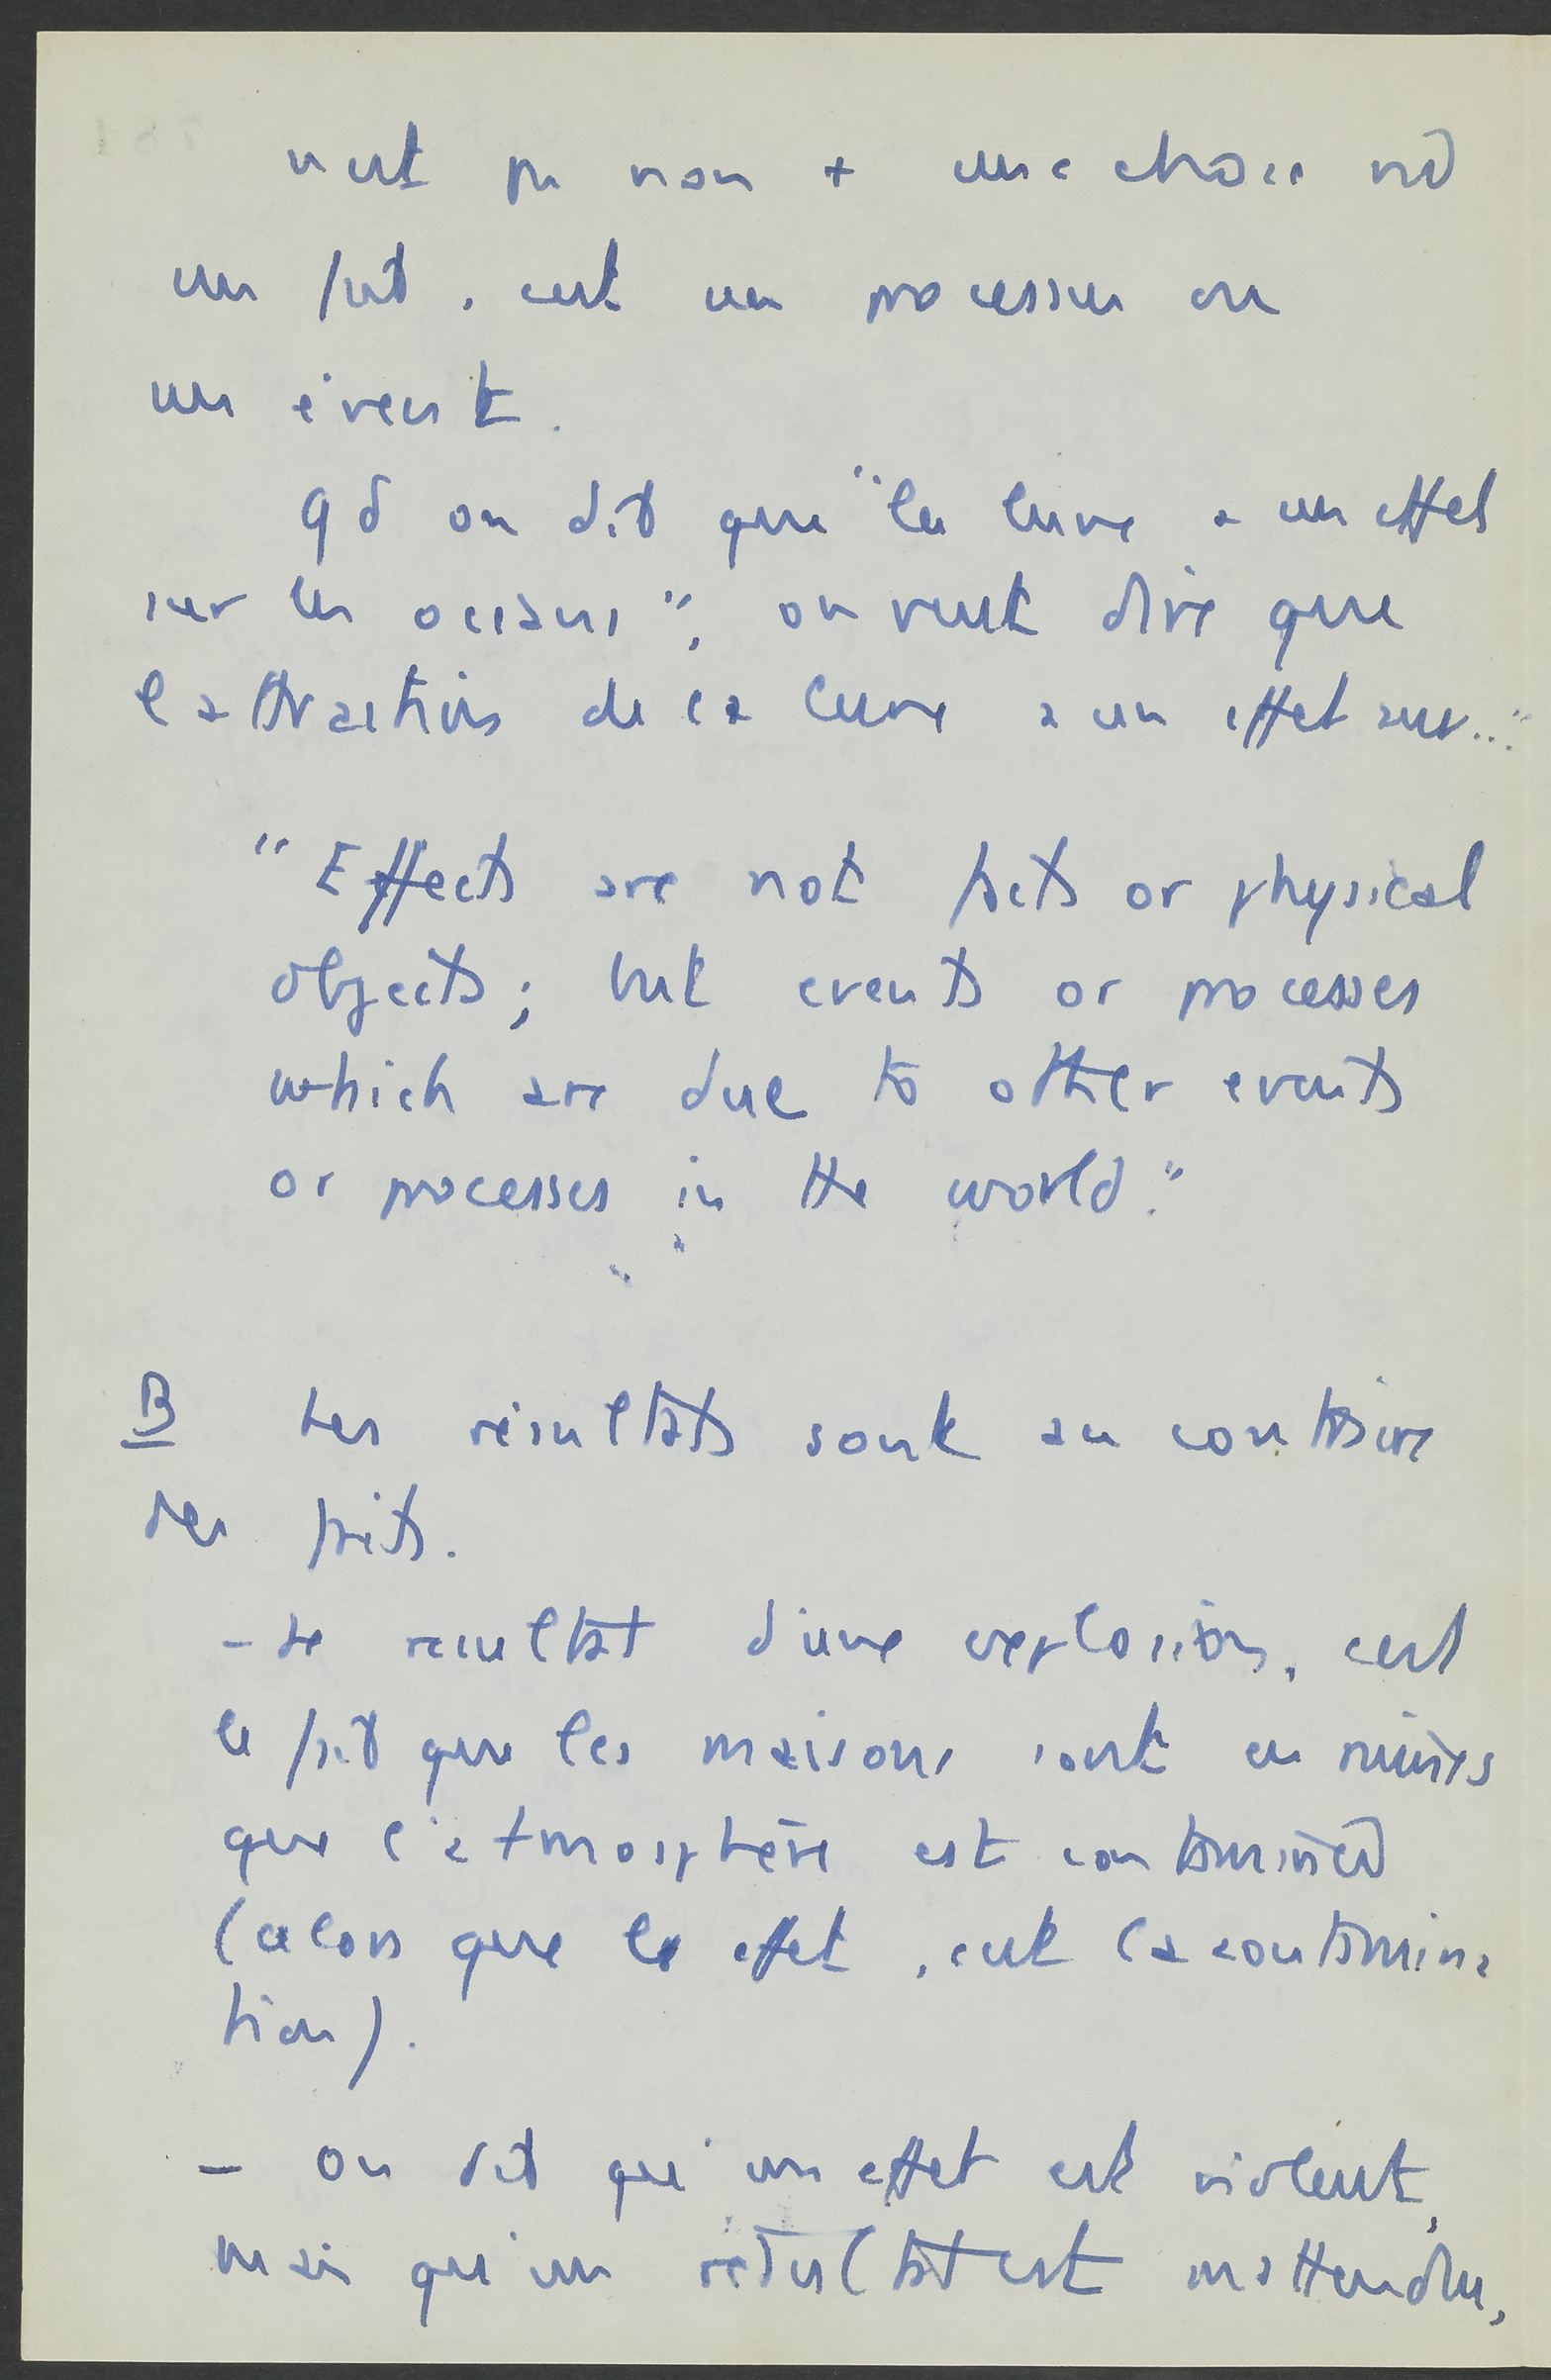 n'est pas non + une chose ni
un fait. c'est un processus ou
un évent.
Qd on dit que "la lune a un effet
sur les océans", on veut dire que
l'attraction de la lune a un effet sur..."
"Effects are not facts or physical
objects; but events or processes
which are due to other events
or processes in the world."
B Les résultats sont au contraire
des faits.
- Le résultat d'une explosion, c'est
le fait que les maisons sont en ruines
que l'atmosphère est contaminée
(alors que le effet, c'est la contamina
tion).
- On dit qu'un effet est violent,
mais qu'un résultat est inattendu,